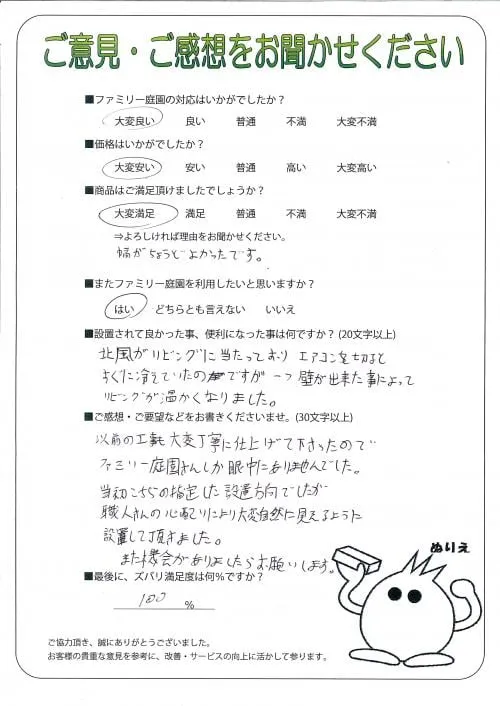 ご意見・ご感想をお聞かせください
■ファミリー庭園の対応はいかがでしたか？
大変良い 良い 普通 不満 大変不満
■価格はいかがでしたか？
大変安い 安い 普通 高い 大変高い
■商品はご満足頂けましたでしょうか？
大変満足 満足 普通 不満 大変不満
⇒よろしければ理由をお聞かせください。
幅がちょうどよかったです。
■またファミリー庭園を利用したいと思いますか？
はい どちらとも言えない いいえ
■設置されて良かった事、便利になった事は何ですか？(20文字以上)
北風がリビングに当たっており エアコンを切ると
すぐに冷えていたのですが 一つ壁が出来た事によって
リビングが温かくなりました。
■ご感想・ご要望などをお書きくださいませ。(30文字以上)
以前の工事も大変丁寧に仕上げて下さったので
ファミリー庭園さんしか眼中にありませんでした。
当初こちらの指定した設置方向でしたが
職人さんの心配りにより大変自然に見えるように
設置して頂きました。
また機会がありましたらお願いします。
ぬりえ
■最後に、ズバリ満足度は何％ですか？
100 %
ご協力頂き、誠にありがとうございました。
お客様の貴重な意見を参考に、改善・サービスの向上に活かして参ります。